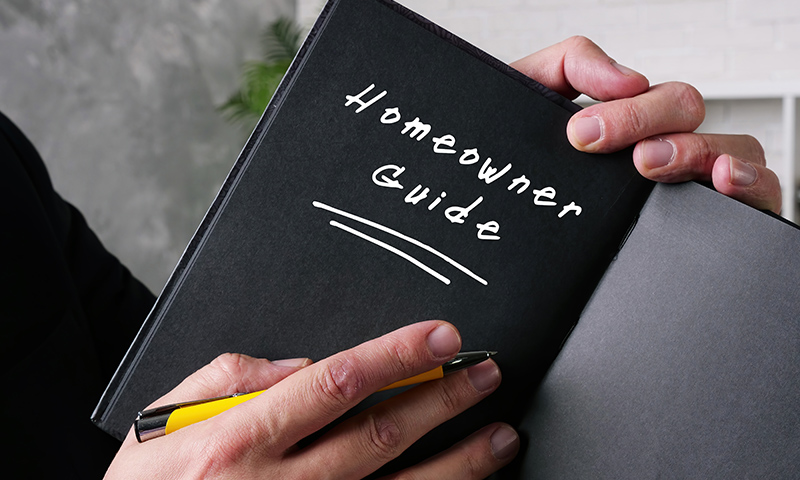 Homeowner
Guide